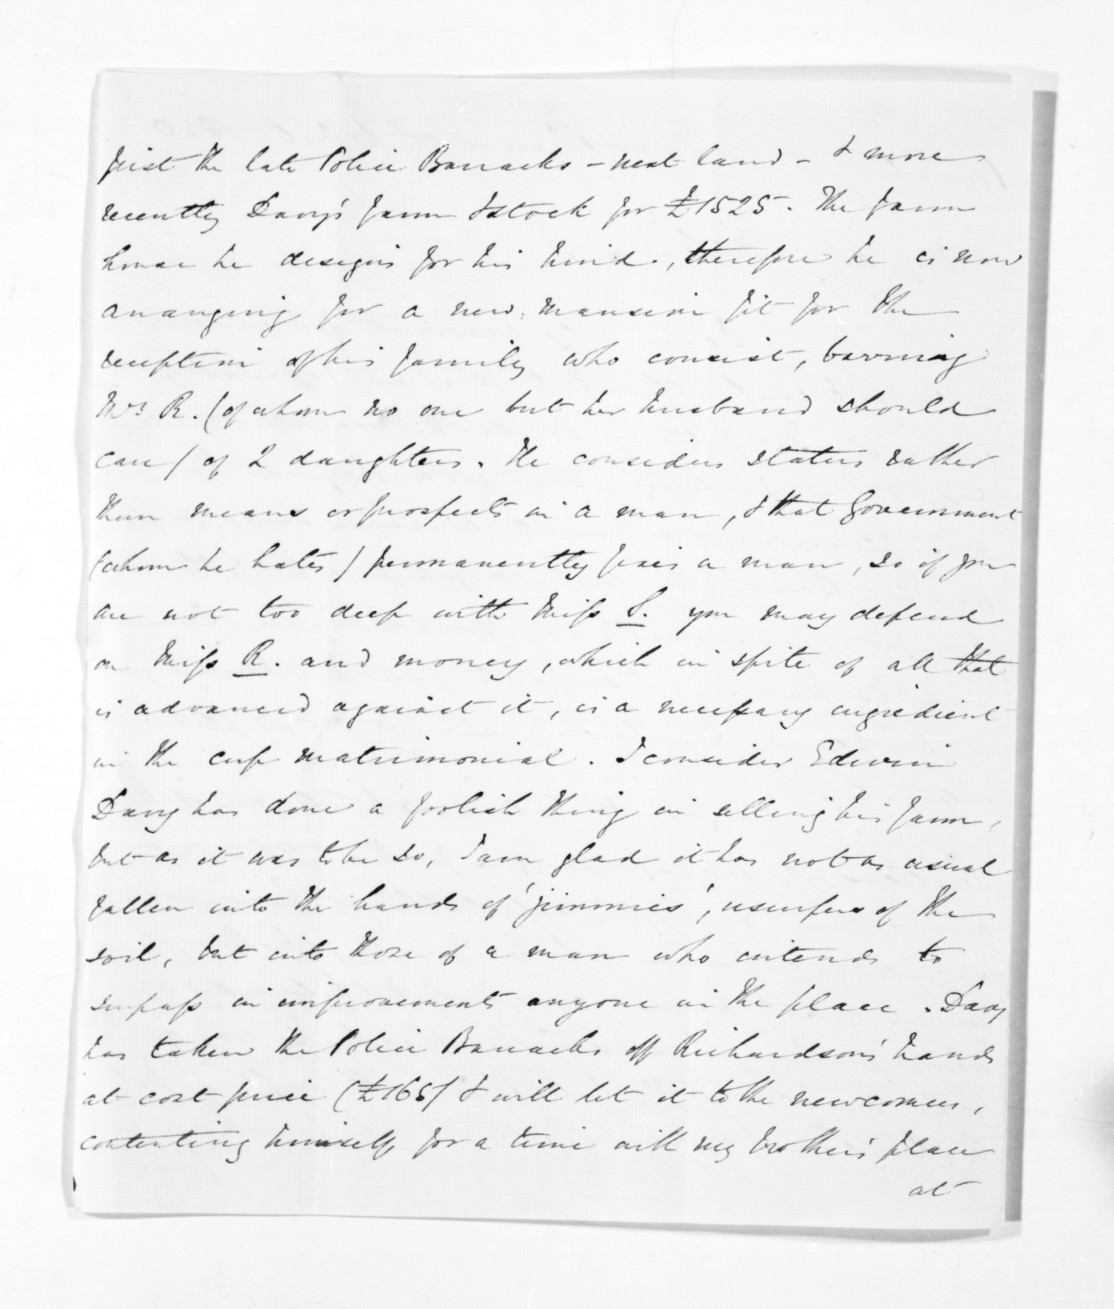 first the late Police Barracks - next land - & more
recently Davy's farm & stock for £1525. The farm
house he designs for his hind, therefore he is now
arranging for a new mansion fit for the
reception of his family who consist, barring
Mrs R. (of whom no one but her husband should
care) of 2 daughters. He considers status rather
than means or prospects in a man, & that Government
(whom he hates) permanently fixes a man, so if you
are not too deep with Miss S. you may depend
on Miss R. and money, which in spite of all that
is advanced against it, is a necessary ingredient
in the cup matrimonial. I consider Edwin
Davy has done a foolish thing in selling his farm,
but as it was to be so, I am glad it has not as usual
fallen into the hands of 'jimmies', usurpers of the
soil, but into those of a man who intends to
surpass in improvements anyone in the place. Davy
has taken the Police Barracks off Richardson's hands
at cost price (£165) & will let it to the newcomers,
contenting himself for a time with my brother's place
at